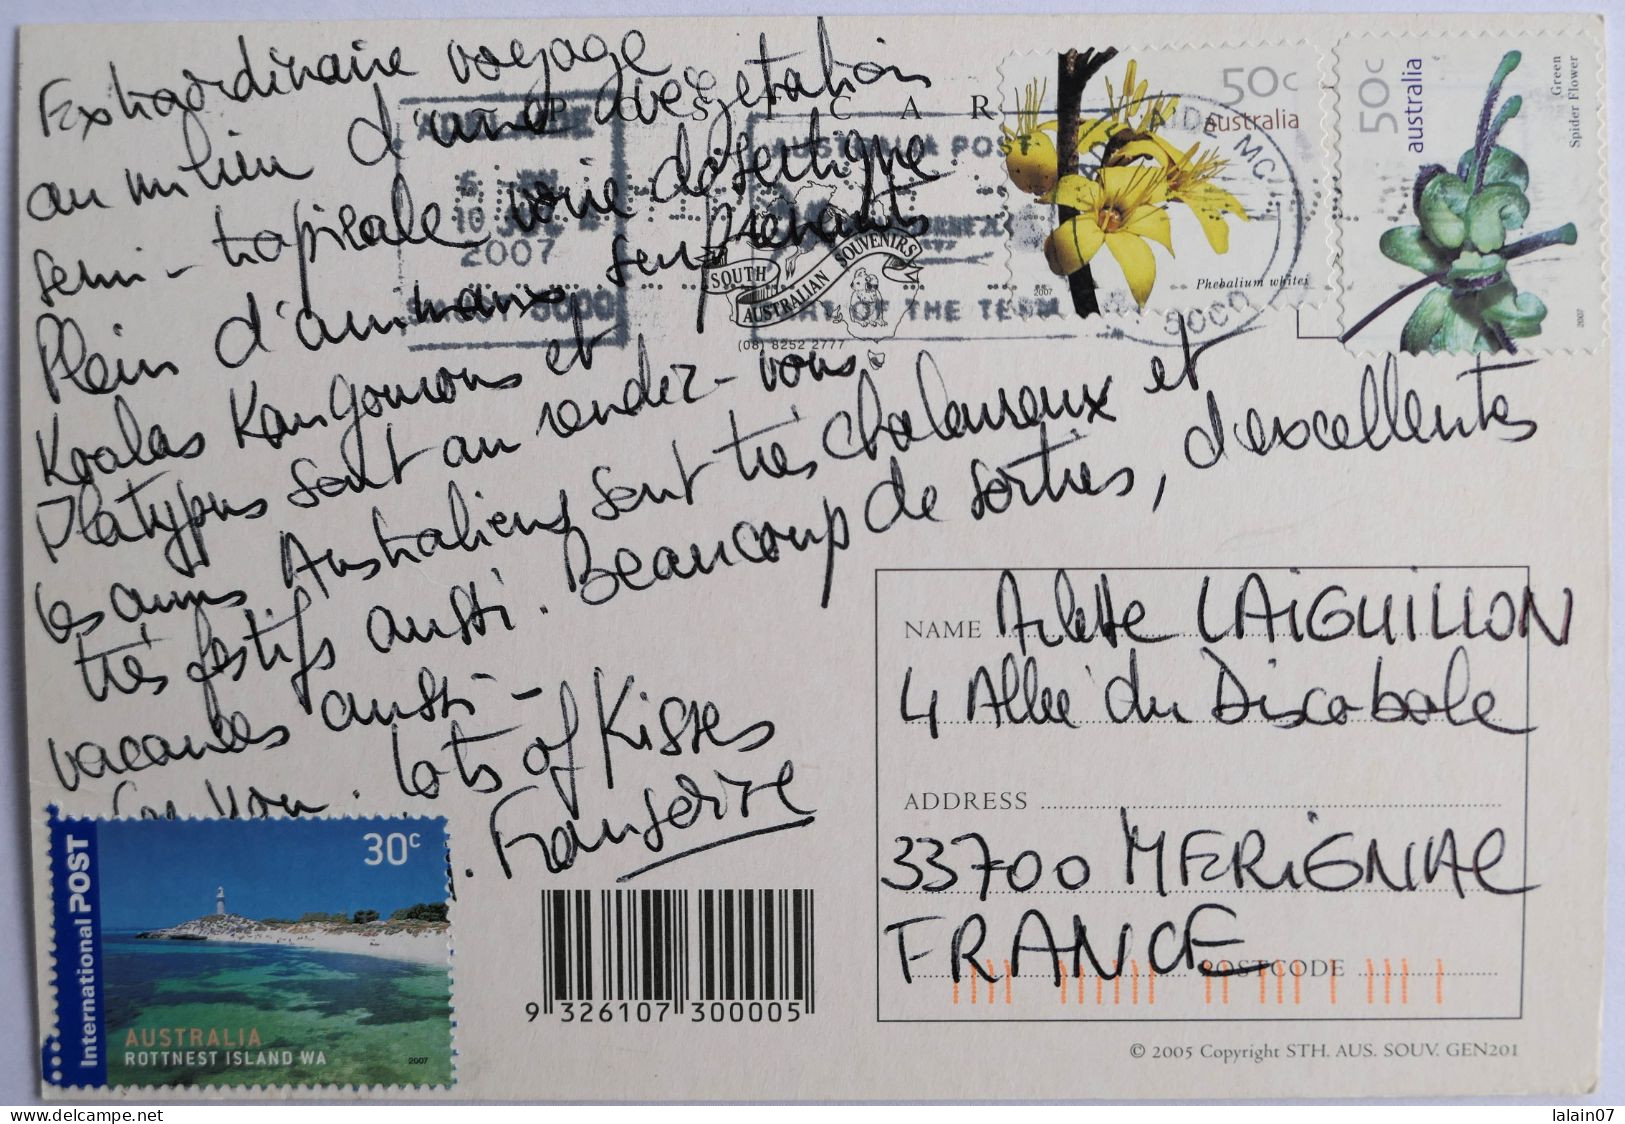 Extraordinaire voyage
au milieu d'une végétation
semi-tropicale voire désertique
Plein d'animaux, serpents
Koalas Kangourous et
Platypus sont au rendez-vous.
les amis Australiens sont très chaleureux et
très festifs aussi. Beaucoup de sorties, d'excellentes
vacances aussi -
For you. Lots of Kisses
POSTCAR
ADELAIDE MC
AUSTRALIA POST
10
2007
5000
PART OF THE TEAM
SOUTH AUSTRALIAN SOUVENIRS
(08) 8252 2777
50c
australia
Phebalium whitei
2007
50c
australia
Green
Spider Flower
2007
NAME Arlette LAIGUILLON
4 Allée du Discobole
ADDRESS
33700 MERIGNAC
FRANCE
POSTCODE
© 2005 Copyright STH. AUS. SOUV. GEN201
International POST
30c
AUSTRALIA
ROTTNEST ISLAND WA
2007
9 326107 300005
lalain07